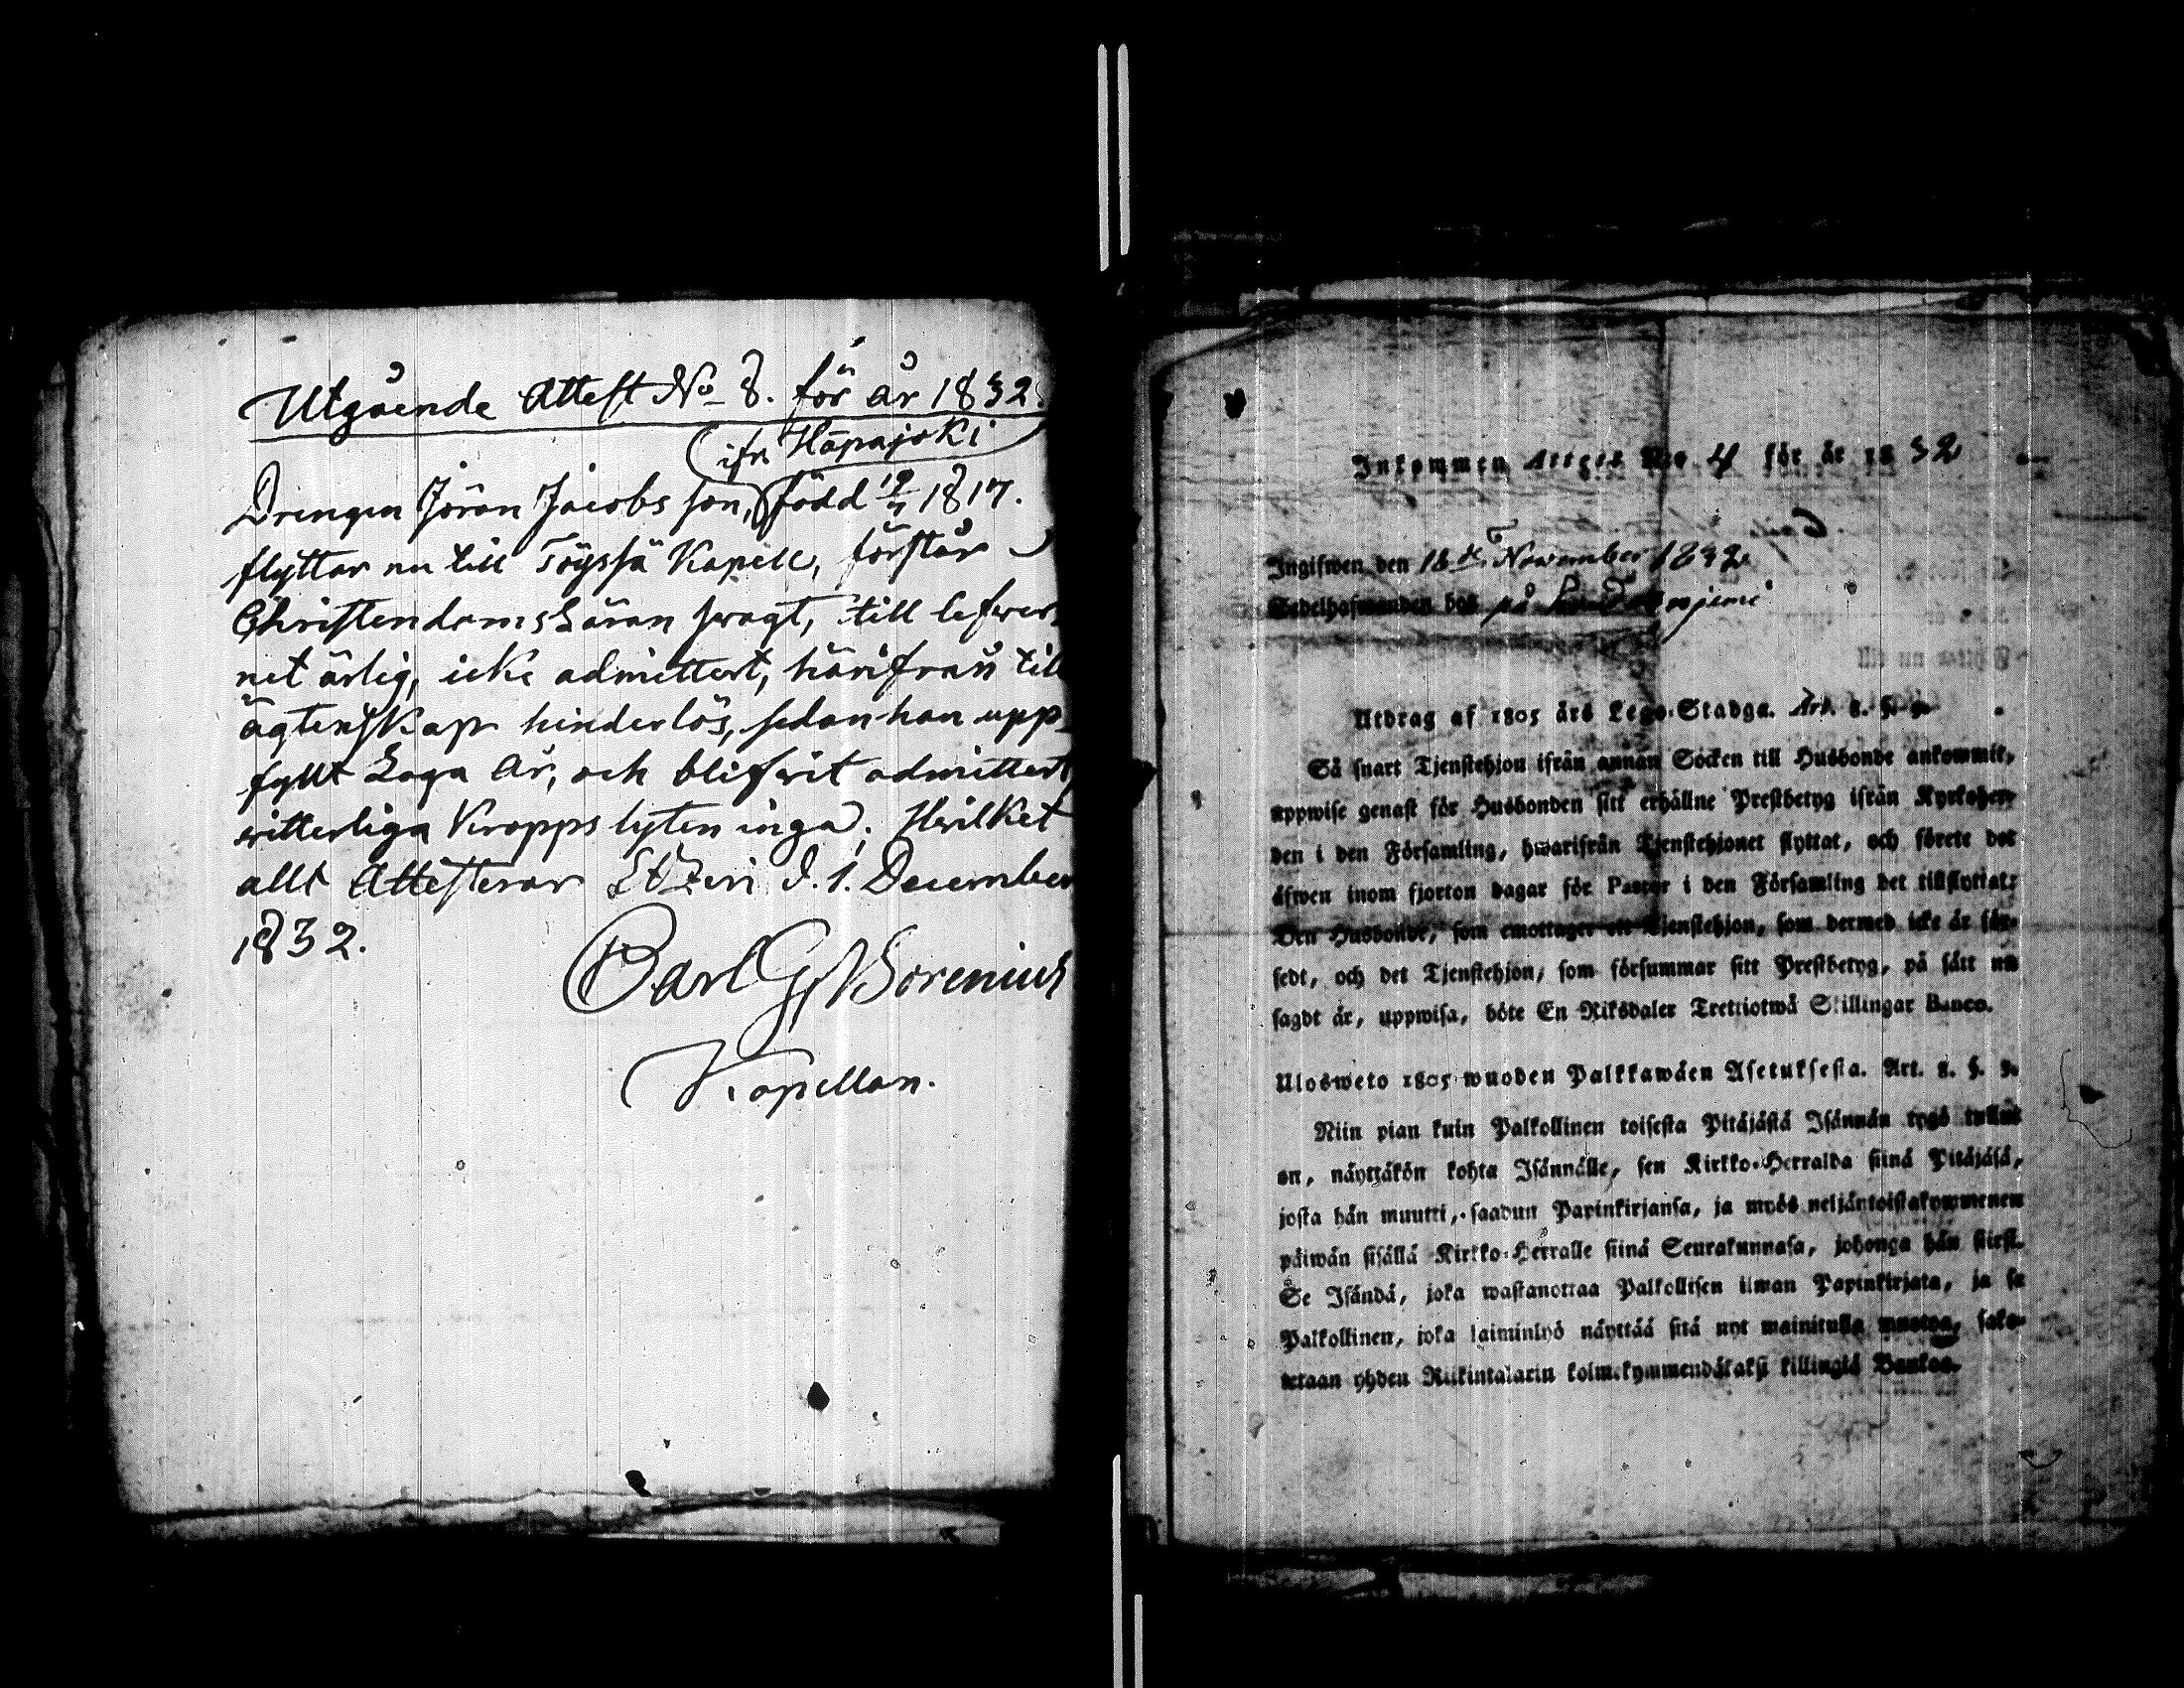 Utgående Attest No 8. för år 1832.
(ifr. Håpajoki)
Drengen Jöran Jacobs son, född 19/7 1817.
flyttar nu till Töyssä Kapell, förstår
Christendoms Läran swagt, till lefwer-
net ärlig, icke admittert, härifrån till
ägtenskap hinderlös, sedan han upp-
fyllt Laga År, och blifwit admittert,
witterliga Kropps lyten inga; Hvilket
allt Attesterar Etzeri d. 1. December
1832.
Carl G. Borenius
Kapellan.
Inkommen Attest No 4 för år 1832
Ingifwen den 18 November 1832
Sedelhafwanden bor på
Utdrag af 1805 års Lego-Stadga. Art. 8. §. 9.
Så snart Tjenstehjon ifrån annan Socken till Husbonde ankommit,
uppwise genast för Husbonden sitt erhållne Prestbetyg ifrån Kyrkoher-
den i den Församling, hwarifrån Tjenstehjonet flyttat, och förete det
äfwen inom fjorton dagar för Pastor i den Församling det tillflyttat:
Den Husbonde, som emottager ett Tjenstehjon, som dermed icke är för-
sedt, och det Tjenstehjon, som försummar sitt Prestbetyg, på sätt nu
sagdt är, uppwisa, böte En Riksdaler Trettiotwå Skillingar Banco.
Ulosweto 1805 wuoden Palkkawäen Asetuksesta. Art. 8. §. 9.
Niin pian kuin Palkollinen toisesta Pitäjästä Isännän tygö tullut
on, näyttäkön kohta Isännälle, sen Kirkko-Herralda siinä Pitäjäsä,
josta hän muutti, saadun Papinkirjansa, ja myös neljäntoistakymmenen
päiwän sisällä Kirkko-Herralle siinä Seurakunnasa, johonga hän siirsi.
Se Isändä, joka wastanottaa Palkollisen ilman Papinkirjata, ja se
Palkollinen, joka laiminlyö näyttää sitä nyt mainitulla muotoa, sako-
tetaan yhden Riikintalarin kolmekymmendäkaksi killingiä Bankoa.